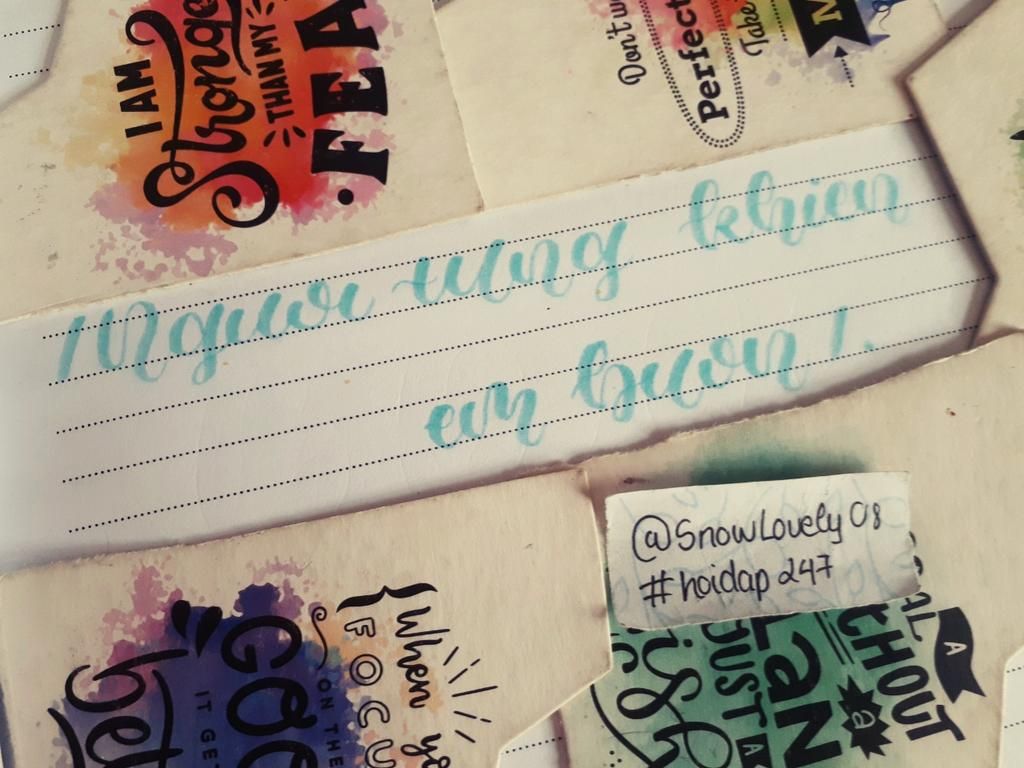 I AM
Stronger
THAN MY
FEA
Don't w
Perfect
Take
Nguoi tung khien
em buon!
@SnowLovely08
#hoidap247
{When yo
FOCU
ON THE
GOO
IT GE
bet
AL
A
THOUT
a
Lan
JUST A
ish